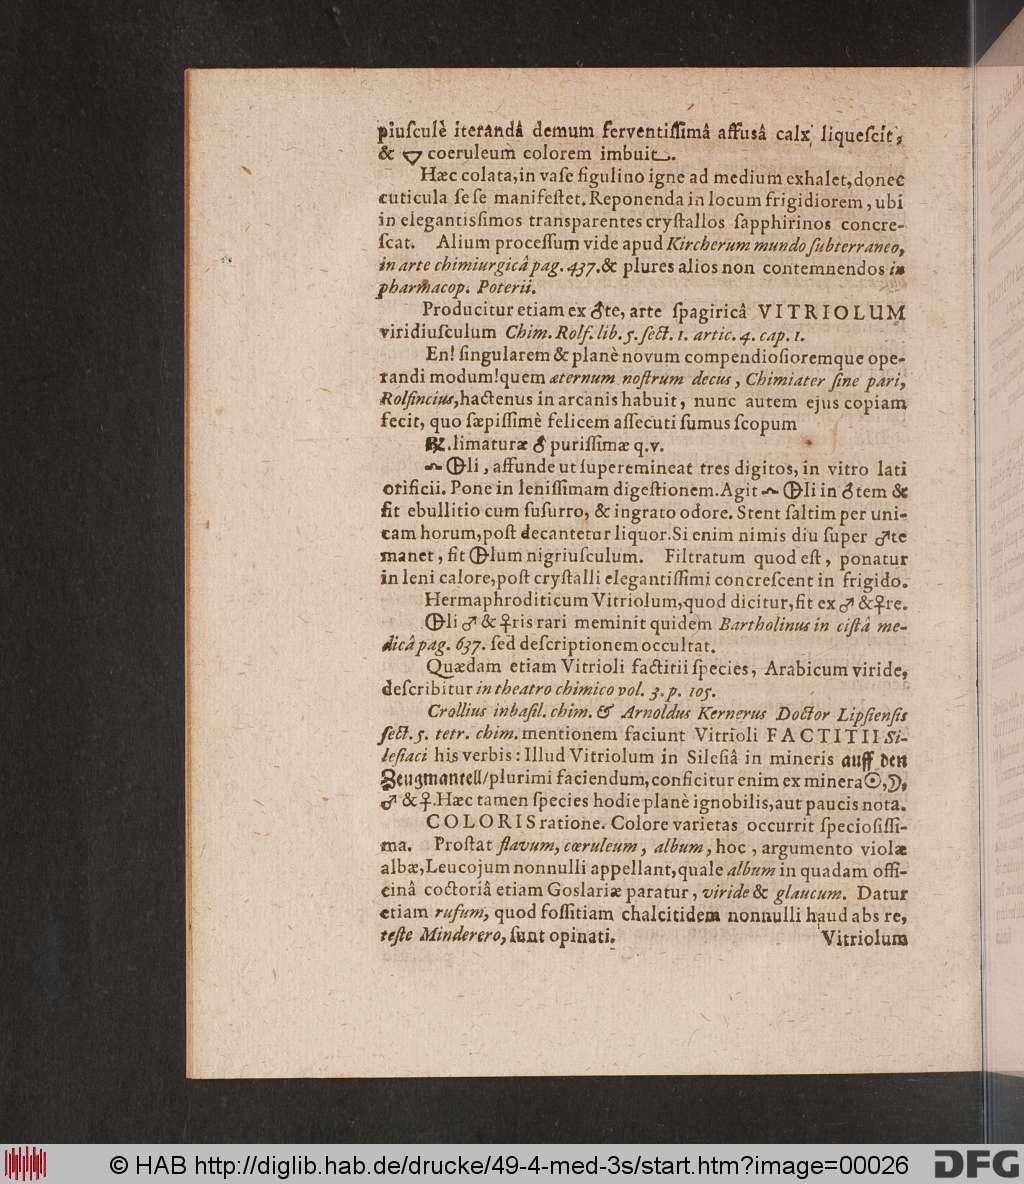 piuſculè iterandâ demum ferventiſſimâ affuſâ calx liqueſcit,
& 🜄 coeruleum colorem imbuit.
Hæc colata, in vaſe figulino igne ad medium exhalet, donec
cuticula ſe ſe manifeſtet. Reponenda in locum frigidiorem, ubi
in elegantiſsimos transparentes cryſtallos ſapphirinos concre-
ſcat. Alium proceſſum vide apud Kircherum mundo ſubterraneo,
in arte chimiurgicâ pag. 437. & plures alios non contemnendos in
pharmacop. Poterii.
Producitur etiam ex ♂te, arte ſpagiricâ VITRIOLUM
viridiuſculum Chim. Rolf. lib. 5. ſect. 1. artic. 4. cap. 1.
En! ſingularem & planè novum compendioſioremque ope-
randi modum! quem æternum noſtrum decus, Chimiater ſine pari,
Rolfincius, hactenus in arcanis habuit, nunc autem ejus copiam
fecit, quo ſæpiſſimè felicem aſſecuti ſumus ſcopum
℞. limaturæ ♂ puriſſimæ q.v.
🜖li, affunde ut ſuperemineat tres digitos, in vitro lati
orificii. Pone in leniſſimam digeſtionem. Agit 🜖li in ♂tem &
fit ebullitio cum ſuſurro, & ingrato odore. Stent ſaltim per uni-
cam horum, poſt decantetur liquor. Si enim nimis diu ſuper ♂te
manet, fit 🜖lum nigriuſculum. Filtratum quod eſt, ponatur
in leni calore, poſt cryſtalli elegantiſſimi concreſcent in frigido.
Hermaphroditicum Vitriolum, quod dicitur, fit ex ♂ & ♀re.
🜖li ♂ & ♀ris rari meminit quidem Bartholinus in ciſtâ me-
dicâ pag. 637. ſed deſcriptionem occultat.
Quædam etiam Vitrioli factitii ſpecies, Arabicum viride,
deſcribitur in theatro chimico vol. 3. p. 105.
Crollius in baſil. chim. & Arnoldus Kernerus Doctor Lipſienſis
ſect. 5. tetr. chim. mentionem faciunt Vitrioli FACTITII Si-
leſiaci his verbis: Illud Vitriolum in Sileſiâ in mineris auff den
Zeugmantell/ plurimi faciendum, conficitur enim ex minera ☉, ☽,
♂ & ♀. Hæc tamen ſpecies hodie planè ignobilis, aut paucis nota.
COLORIS ratione. Colore varietas occurrit ſpecioſiſſi-
ma. Proſtat flavum, cœruleum, album, hoc, argumento violæ
albæ, Leucojum nonnulli appellant, quale album in quadam offi-
cinâ coctoriâ etiam Goslariæ paratur, viride & glaucum. Datur
etiam rufum, quod foſſitiam chalcitidem nonnulli haud abs re,
teſte Minderero, ſunt opinati. Vitriolum
© HAB http://diglib.hab.de/drucke/49-4-med-3s/start.htm?image=00026 DFG